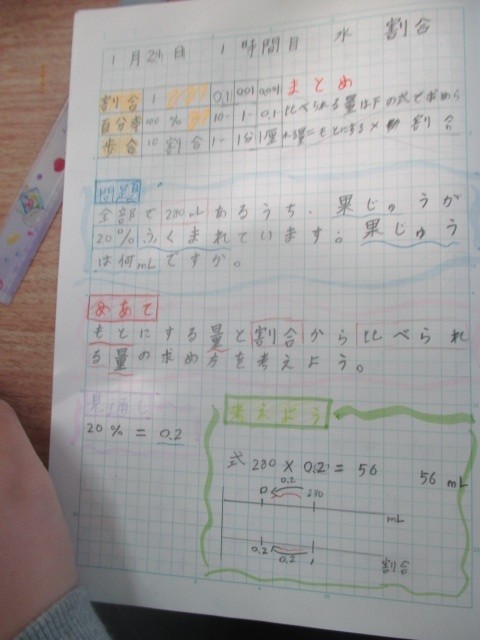 1月24日 1時間目 水 割合
割合 1 0.1 0.1 0.01 0.001 まとめ
百分率 100% 10 10- 1- 0.1- 比べられる量は下の式で求めら
歩合 10割合 1- 1分 1厘 れる量=もとにする× 割合
問題
全部で280mLあるうち、果じゅうが
20%ふくまれています。果じゅう
は何mLですか。
めあて
もとにする量と割合から比べられ
る量の求め方を考えよう。
見通し
20% = 0.2
考えよう
式 280 × 0.2 = 56 56 mL
0.2
□ 280
mL
0.2 1
0.2
割合